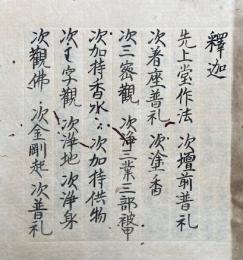 釋迦
先上堂作法 次壇前普礼
次着座普礼 次塗香
次三密觀 次淨三業三部被甲
次加持香水 次加持供物
次字觀 次淨地 次淨身
次觀佛 次金剛起 次普礼